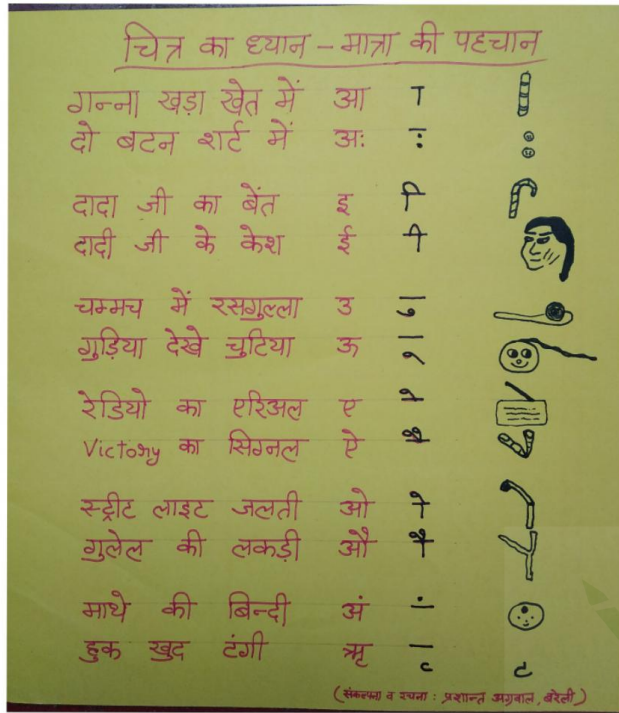 चित्र का ध्यान - मात्रा की पहचान
गन्ना खड़ा खेत में आ ा
दो बटन शर्ट में अः ः
दादा जी का बेंत इ ि
दादी जी के केश ई ी
चम्मच में रसगुल्ला उ ु
गुड़िया देखे चुटिया ऊ ू
रेडियो का एरिअल ए े
Victory का सिग्नल ऐ ै
स्ट्रीट लाइट जलती ओ ो
गुलेल की लकड़ी औ ौ
माथे की बिन्दी अं ं
हुक खुद टंगी ऋ ृ
(संकल्पना व रचना : प्रशान्त अग्रवाल, बरेली)